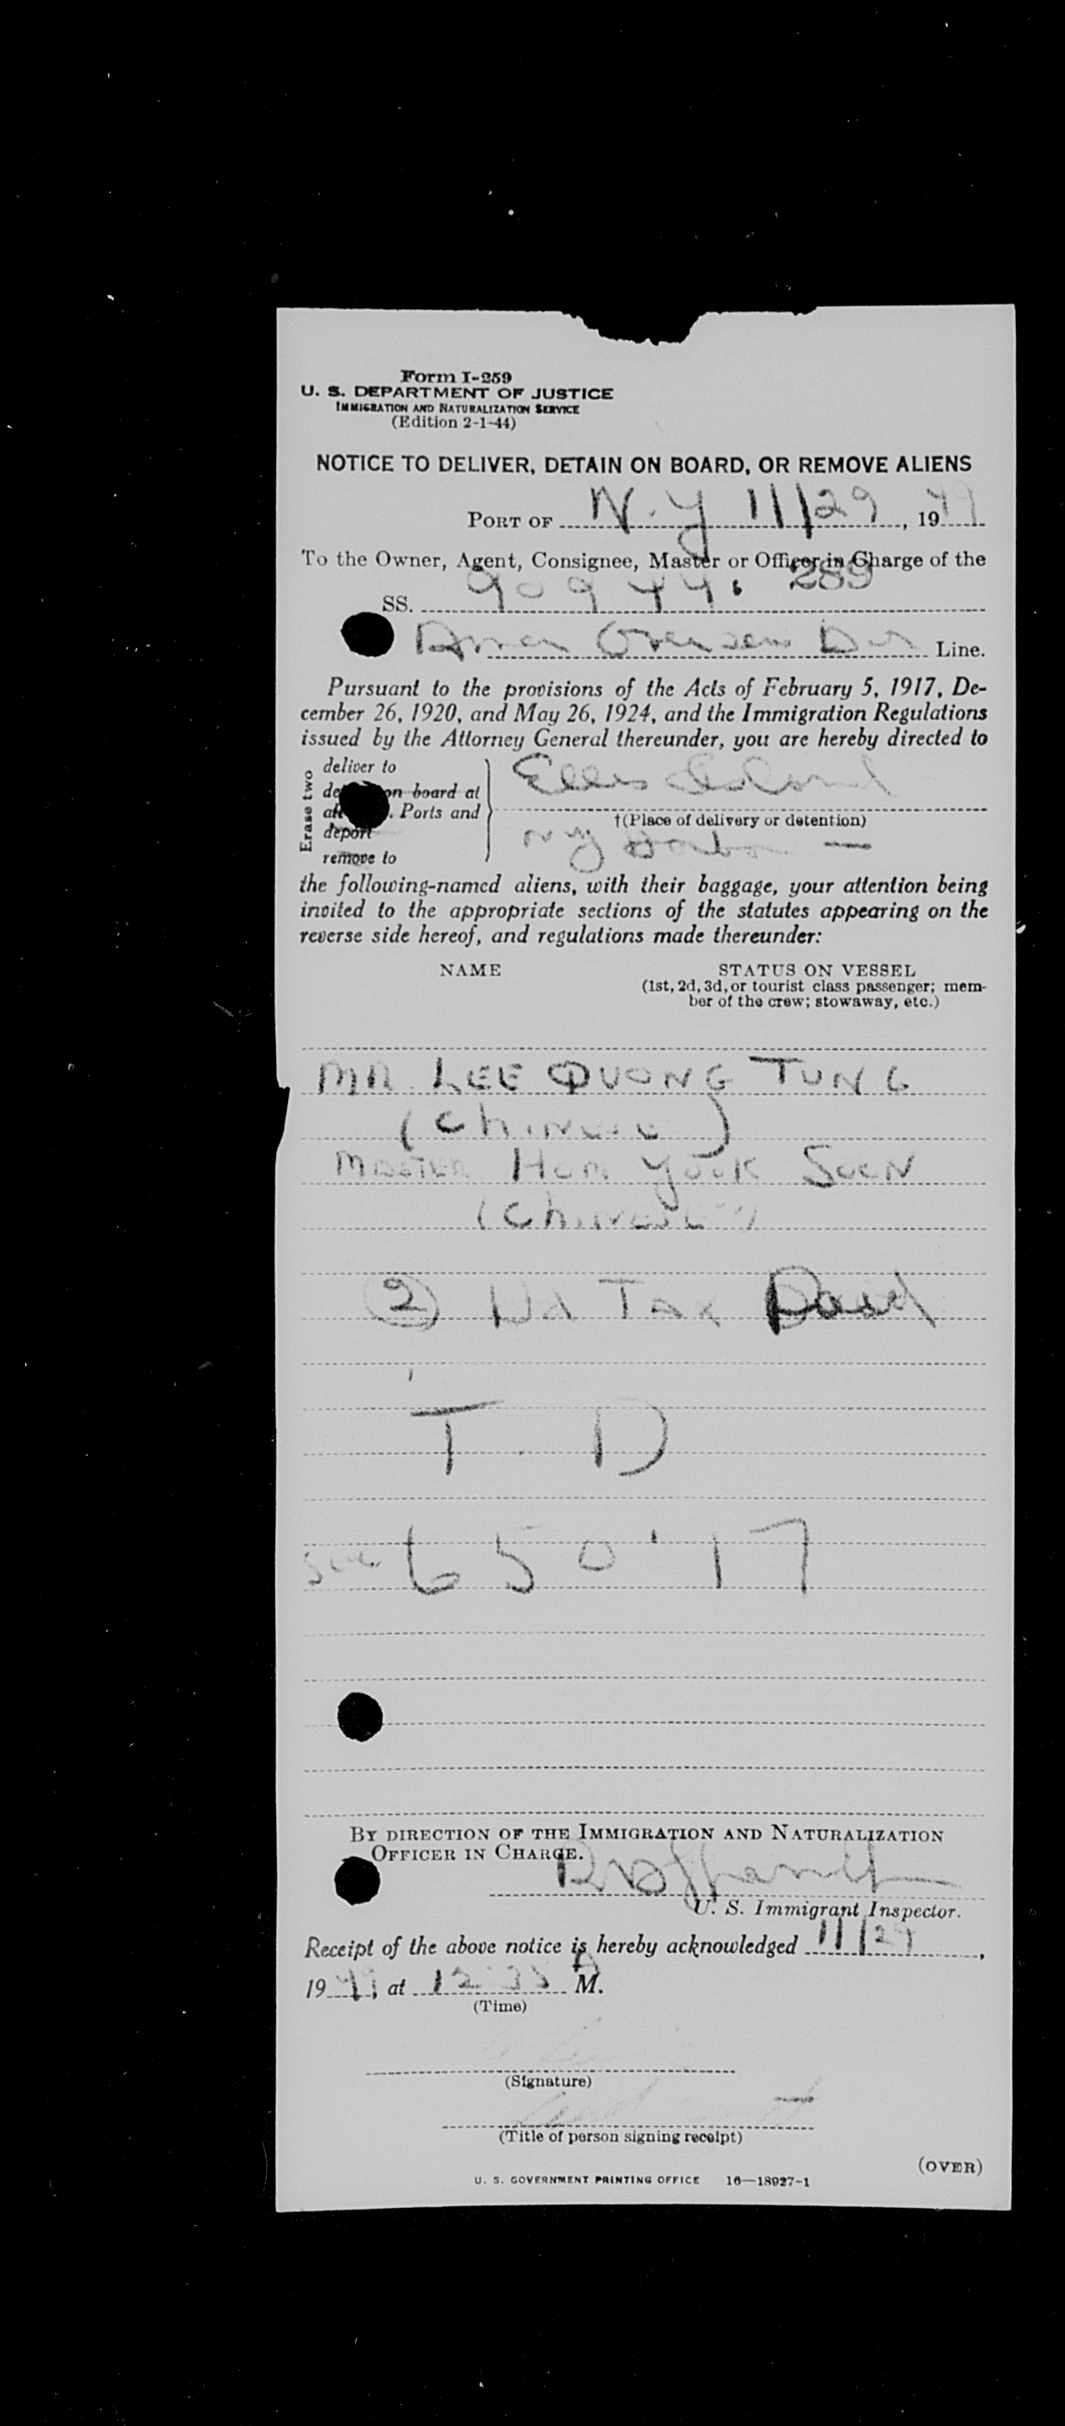 Form I-259
U. S. DEPARTMENT OF JUSTICE
IMMIGRATION AND NATURALIZATION SERVICE
(Edition 2-1-44)
NOTICE TO DELIVER, DETAIN ON BOARD, OR REMOVE ALIENS
PORT OF N.Y 11/29, 1949
To the Owner, Agent, Consignee, Master or Officer in Charge of the
289
SS. 90944.
Amer Overseas Line.
Pursuant to the provisions of the Acts of February 5, 1917, De-
cember 26, 1920, and May 26, 1924, and the Immigration Regulations
issued by the Attorney General thereunder, you are hereby directed to
Erase two
deliver to
on board at
Ports and
deport
remove to
Ellis Island
†(Place of delivery or detention)
NY Harbor —
the following-named aliens, with their baggage, your attention being
invited to the appropriate sections of the statutes appearing on the
reverse side hereof, and regulations made thereunder:
NAME
STATUS ON VESSEL
(1st, 2d, 3d, or tourist class passenger; mem-
ber of the crew; stowaway, etc.)
MR. LEE QUONG TUNG
(Chinese)
MASTER HOM YOOK SUEN
(Chinese)
(2) Hd Tax Paid
T. D
650'17
BY DIRECTION OF THE IMMIGRATION AND NATURALIZATION
OFFICER IN CHARGE.
U. S. Immigrant Inspector.
Receipt of the above notice is hereby acknowledged 11/29,
1949, at 12 35 A M.
(Time)
(Signature)
(Title of person signing receipt)
(OVER)
U. S. GOVERNMENT PRINTING OFFICE 16—18927-1